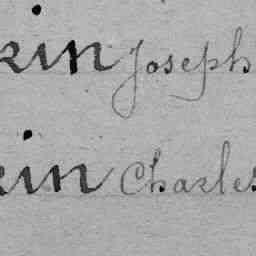 kin Joseph
kin Charles